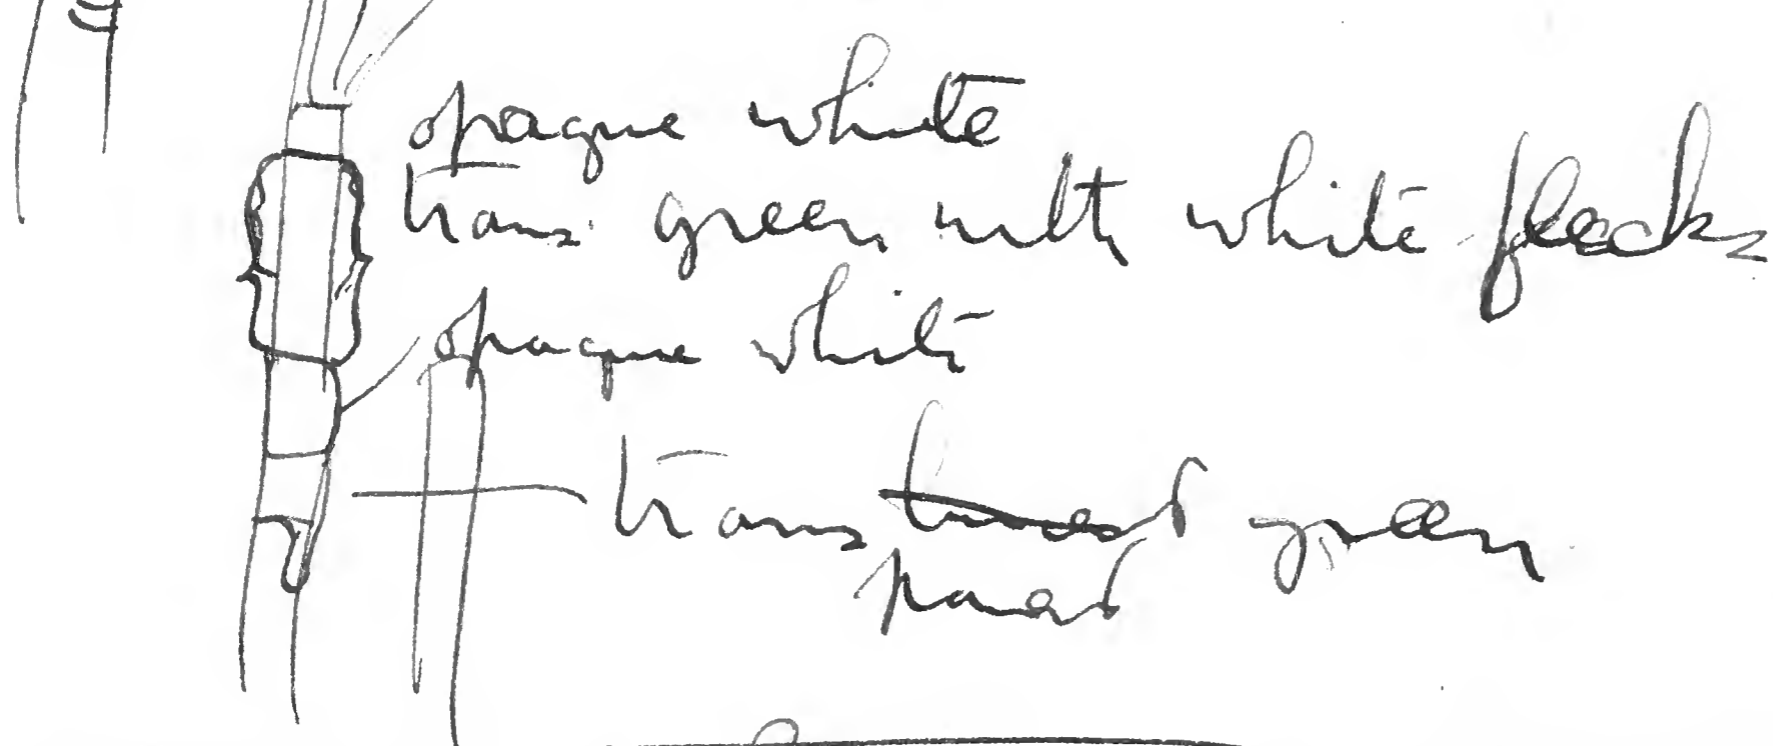 opaque white
trans. green with white flecks
opaque white
trans green